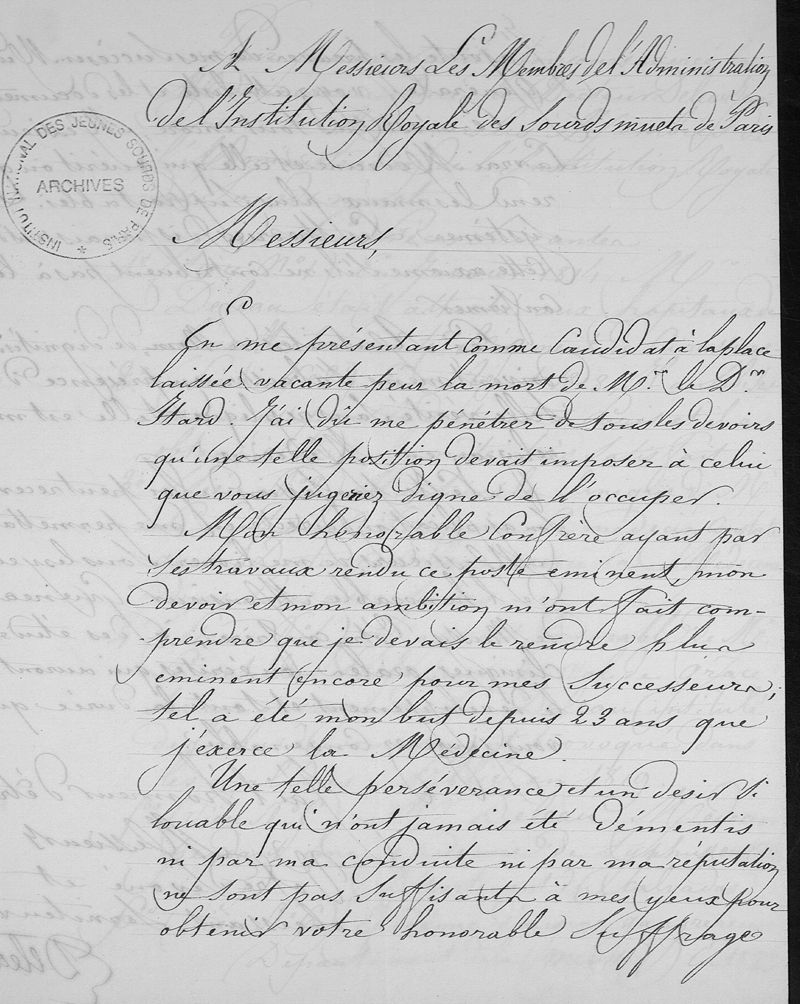 A Messieurs Les Membres de l'Administration
de l'Institution Royale des Sourds muets de Paris
INSTITUT NATIONAL DES JEUNES SOURDS DE PARIS
ARCHIVES
Messieurs,
En me présentant comme Candidat à la place
laissée vacante peur la mort de Mr. le Dr.
Itard. J'ai dû me pénétrer de tous les devoirs
qu'une telle position devait imposer à celui
que vous jugeriez digne de l'occuper.
Mon honorable Confrère ayant par
ses travaux rendu ce poste eminent, mon
devoir et mon ambition m'ont fait com-
prendre que je devais le rendre plus
eminent encore pour mes Successeurs;
tel a été mon but depuis 23 ans que
j'exerce la Médecine.
Une telle persévérance et un desir si
louable qui n'ont jamais été démentis
ni par ma conduite ni par ma réputation
ne sont pas suffisants à mes yeux pour
obtenir votre honorable Suffrage